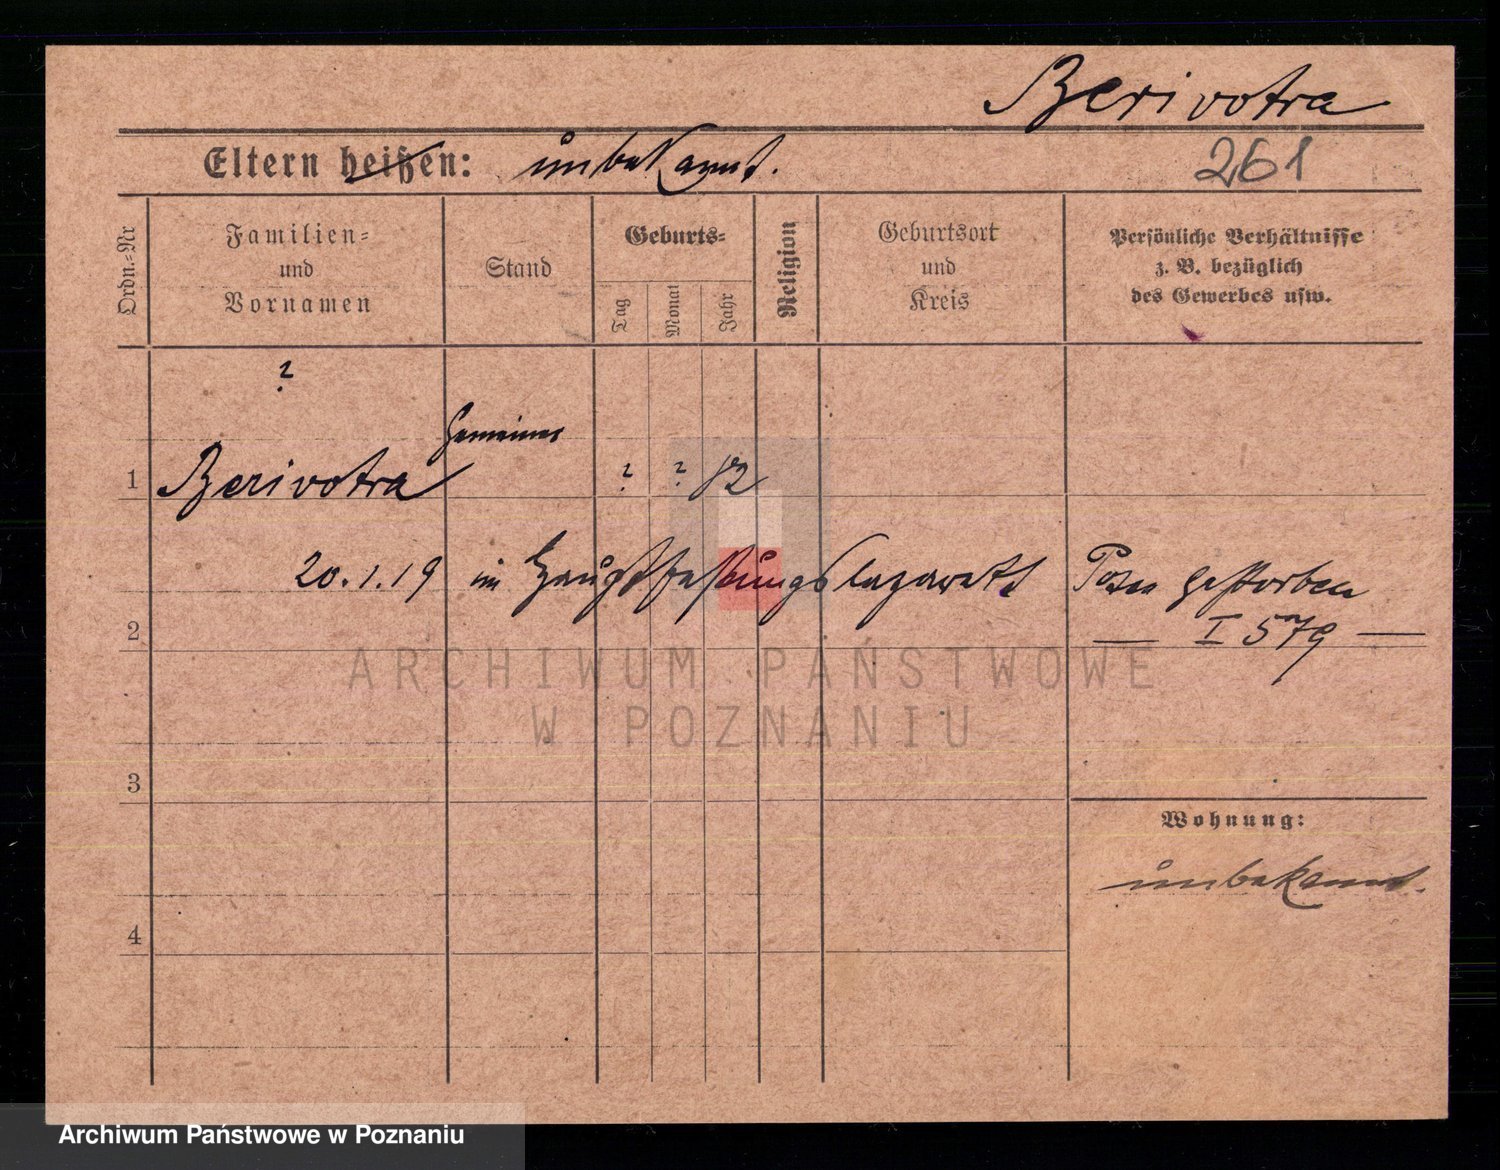 Berivotra
Eltern heißen: unbekannt.
261
Ordn.-Nr
Familien-
und
Vornamen
Stand
Geburts-
Tag
Monat
Jahr
Religion
Geburtsort
und
Kreis
Persönliche Verhältnisse
z. B. bezüglich
des Gewerbes usw.
?
Gemeiner
1 Berivotra ? ? 82
20.1.19 im Hauptfestungslazarett Posen gestorben
2 — I 579 —
ARCHIWUM PAŃSTWOWE
W POZNANIU
3
Wohnung:
unbekannt.
4
Archiwum Państwowe w Poznaniu